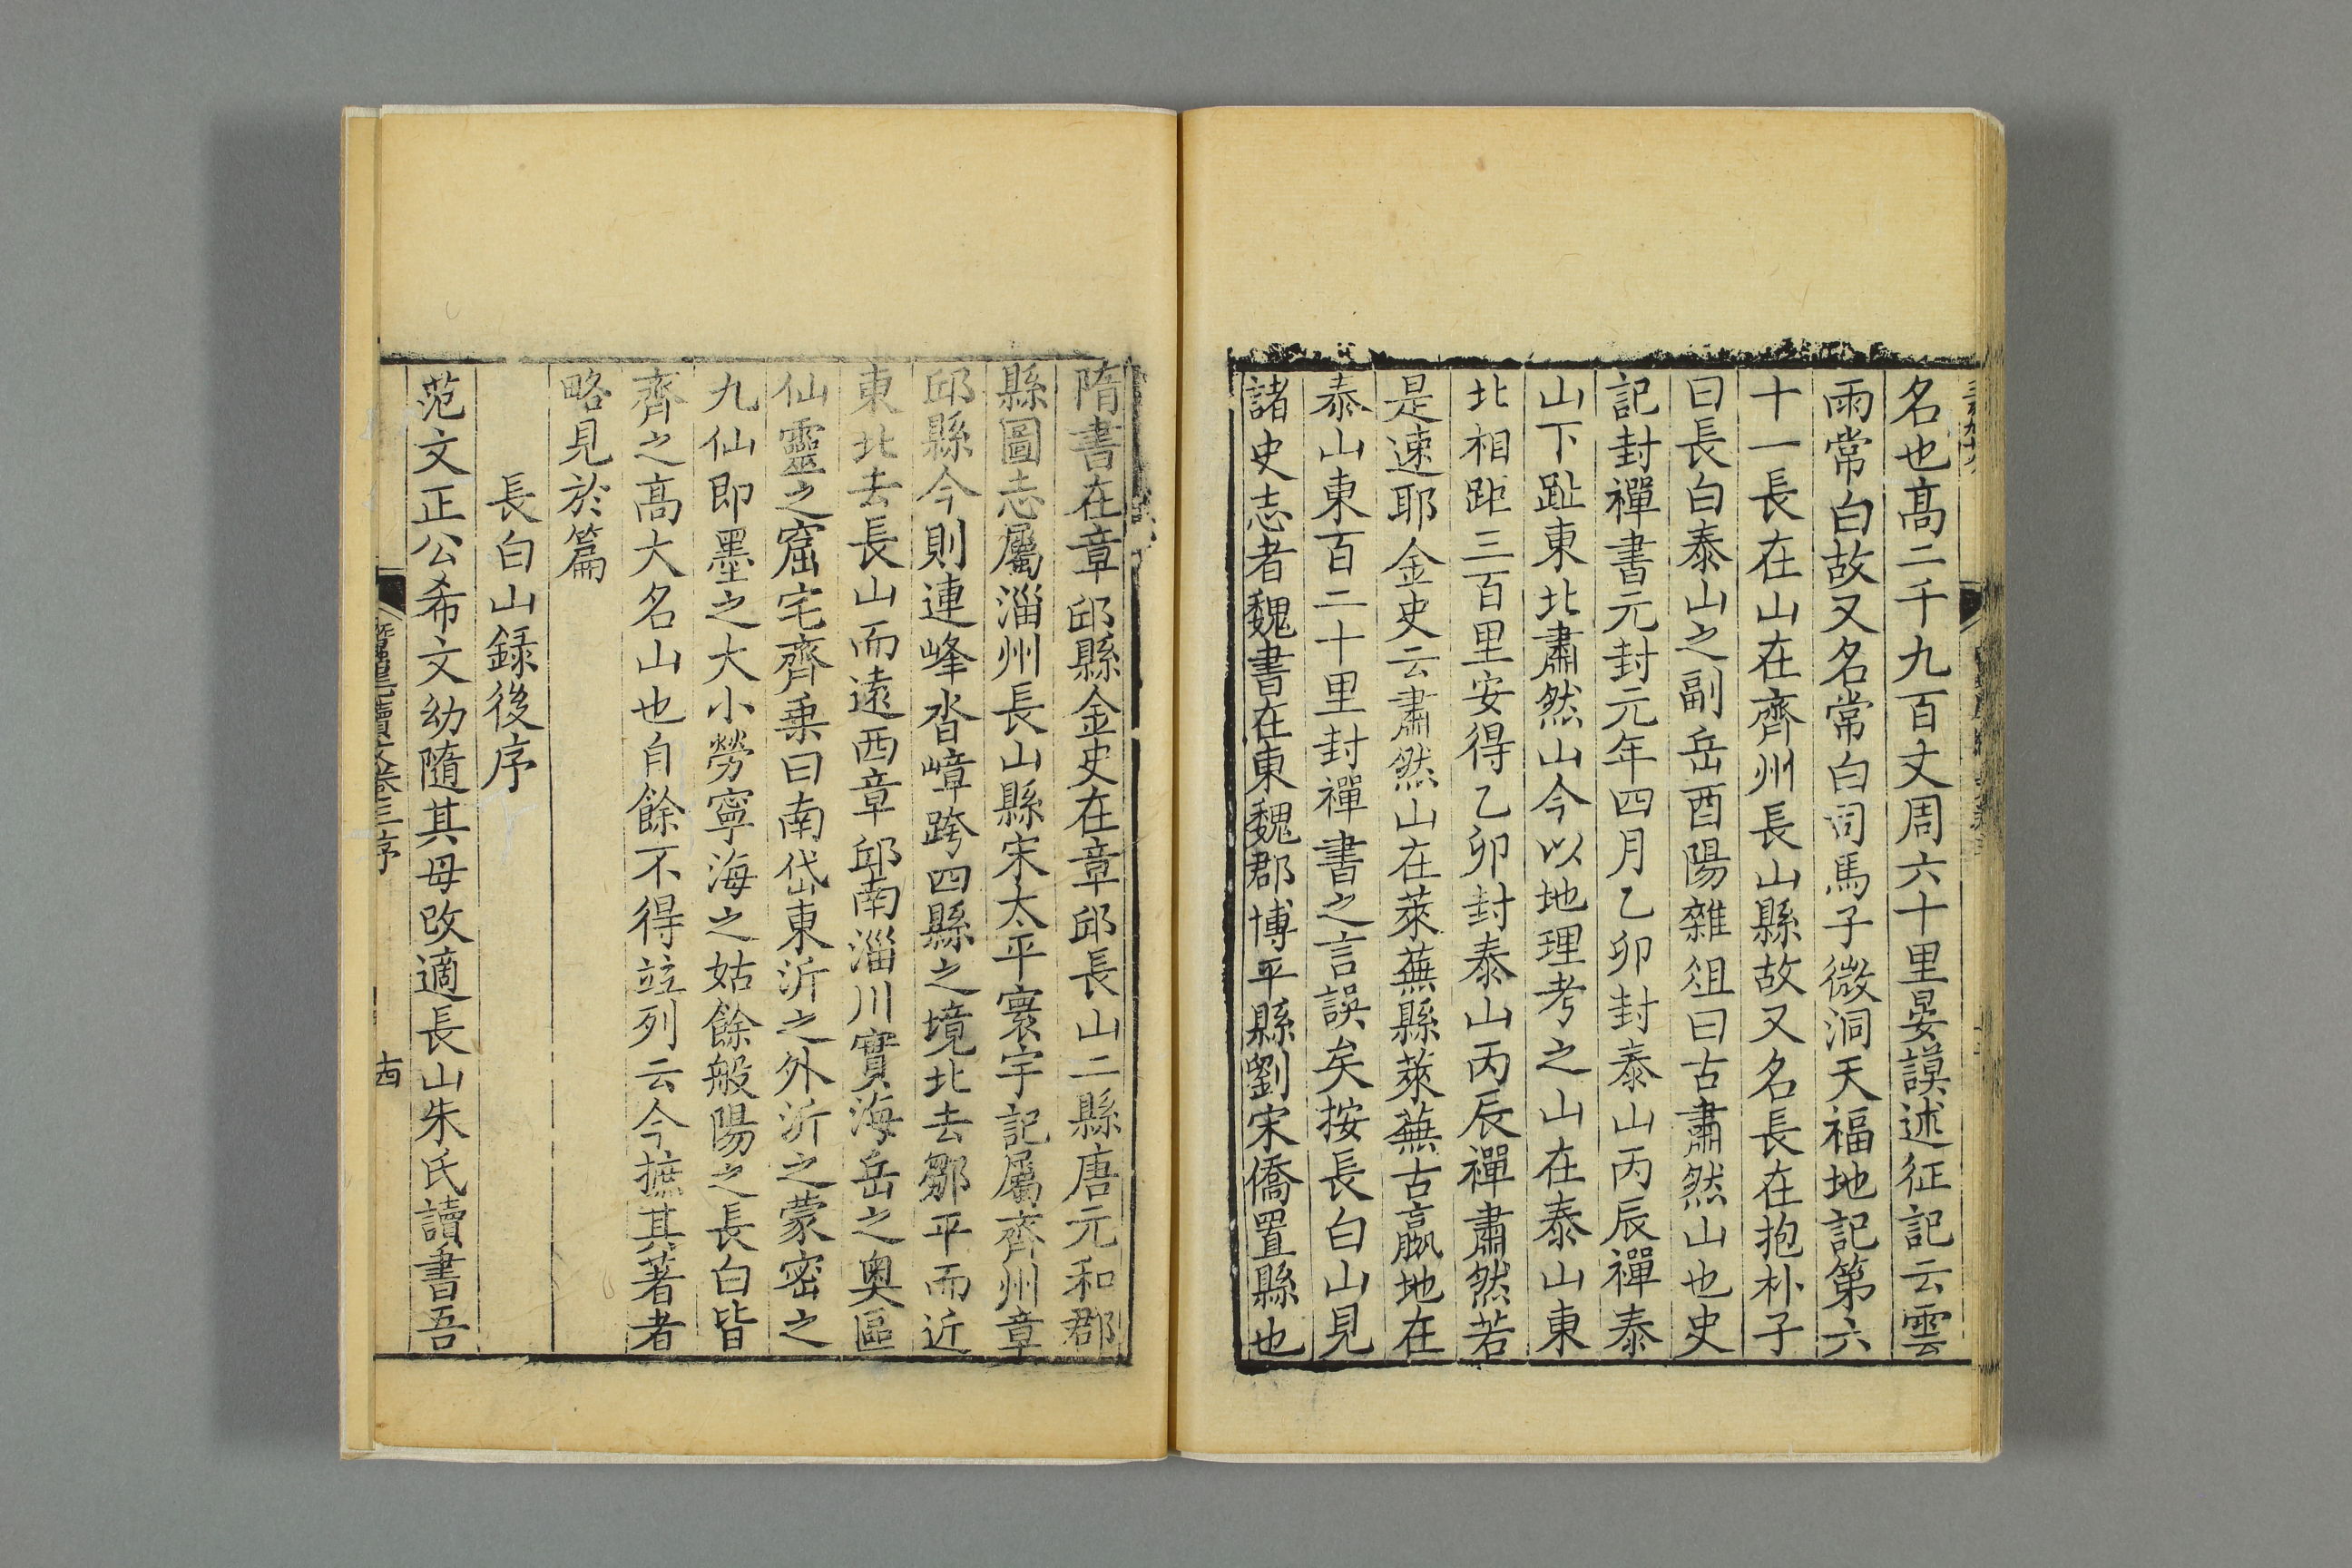 名也高二千九百丈周六十里晏謨述征記云雲
雨常白故又名常白司馬子微洞天福地記第六
十一長在山在齊州長山縣故又名長在抱朴子
曰長白泰山之副岳酉陽雜俎曰古肅然山也史
記封禪書元封元年四月乙卯封泰山丙辰禪泰
山下趾東北肅然山今以地理考之山在泰山東
北相距三百里安得乙卯封泰山丙辰禪肅然若
是速耶金史云肅然山在萊蕪縣萊蕪古嬴地在
泰山東百二十里封禪書之言誤矣按長白山見
諸史志者魏書在東魏郡博平縣劉宋僑置縣也
隋書在章邱縣金史在章邱長山二縣唐元和郡
縣圖志屬淄州長山縣宋太平寰宇記屬齊州章
邱縣今則連峰沓嶂跨四縣之境北去鄒平而近
東北去長山而遠西章邱南淄川實海岳之奧區
仙靈之窟宅齊乗曰南岱東沂之外沂之蒙密之
九仙即墨之大小勞寧海之姑餘般陽之長白皆
齊之高大名山也自餘不得竝列云今摭其著者
略見於篇
長白山録後序
范文正公希文幼隨其母改適長山朱氏讀書吾
卷三序
十四